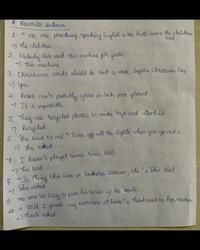 * Rewrite sentences
1. "We are practising speaking English in the hall now" the children said.
=> The children
2. Nobody has used this machine for years
=> This machine
3. Christmas cards should be sent a week before Christmas Day
=> You
4. Roses can't possibly grow in such poor ground
=> It is impossible
5. They use recycled plastic to make toys and utensils.
=> Recycled
6. She said to me "Turn off all the lights when you go out"
=> She asked
7. I haven't played tennis since 1990.
=> The last
8. "Is Phong Nha Cave in Southern Vietnam, Nhi?" John said
=> John asked
9. He was too lazy to pass his exam => He
10. "I finish my exercises at home," Thanh said to her teacher.
=> Thanh asked